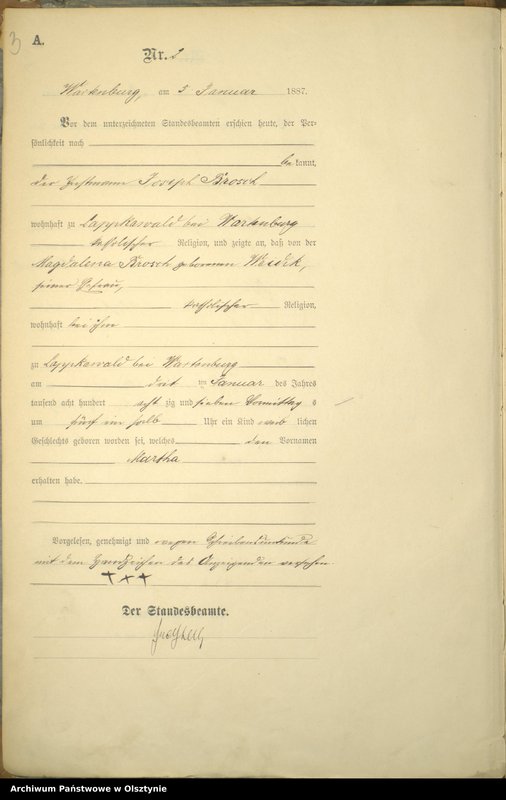 3
A.
Nr. 2
Wartenburg, am 5 Januar 1887.
Vor dem unterzeichneten Standesbeamten erschien heute, der Per-
sönlichkeit nach
be kannt,
der Joseph Brosch
wohnhaft zu Lappkawald bei Wartenburg
katholischer Religion, und zeigte an, daß von der
Magdalena Brosch geborenen
seiner Ehefrau,
katholischer Religion,
wohnhaft bei ihm
zu Lappkawald bei Wartenburg
am drei ten Januar des Jahres
tausend acht hundert acht zig und sieben Vormittag s
um fünf ein halb Uhr ein Kind weib lichen
Geschlechts geboren worden sei, welches den Vornamen
Martha
erhalten habe.
Vorgelesen, genehmigt und wegen Schreibensunkunde
mit dem Handzeichen des Anzeigenden versehen.
+++
Der Standesbeamte.
Archiwum Państwowe w Olsztynie